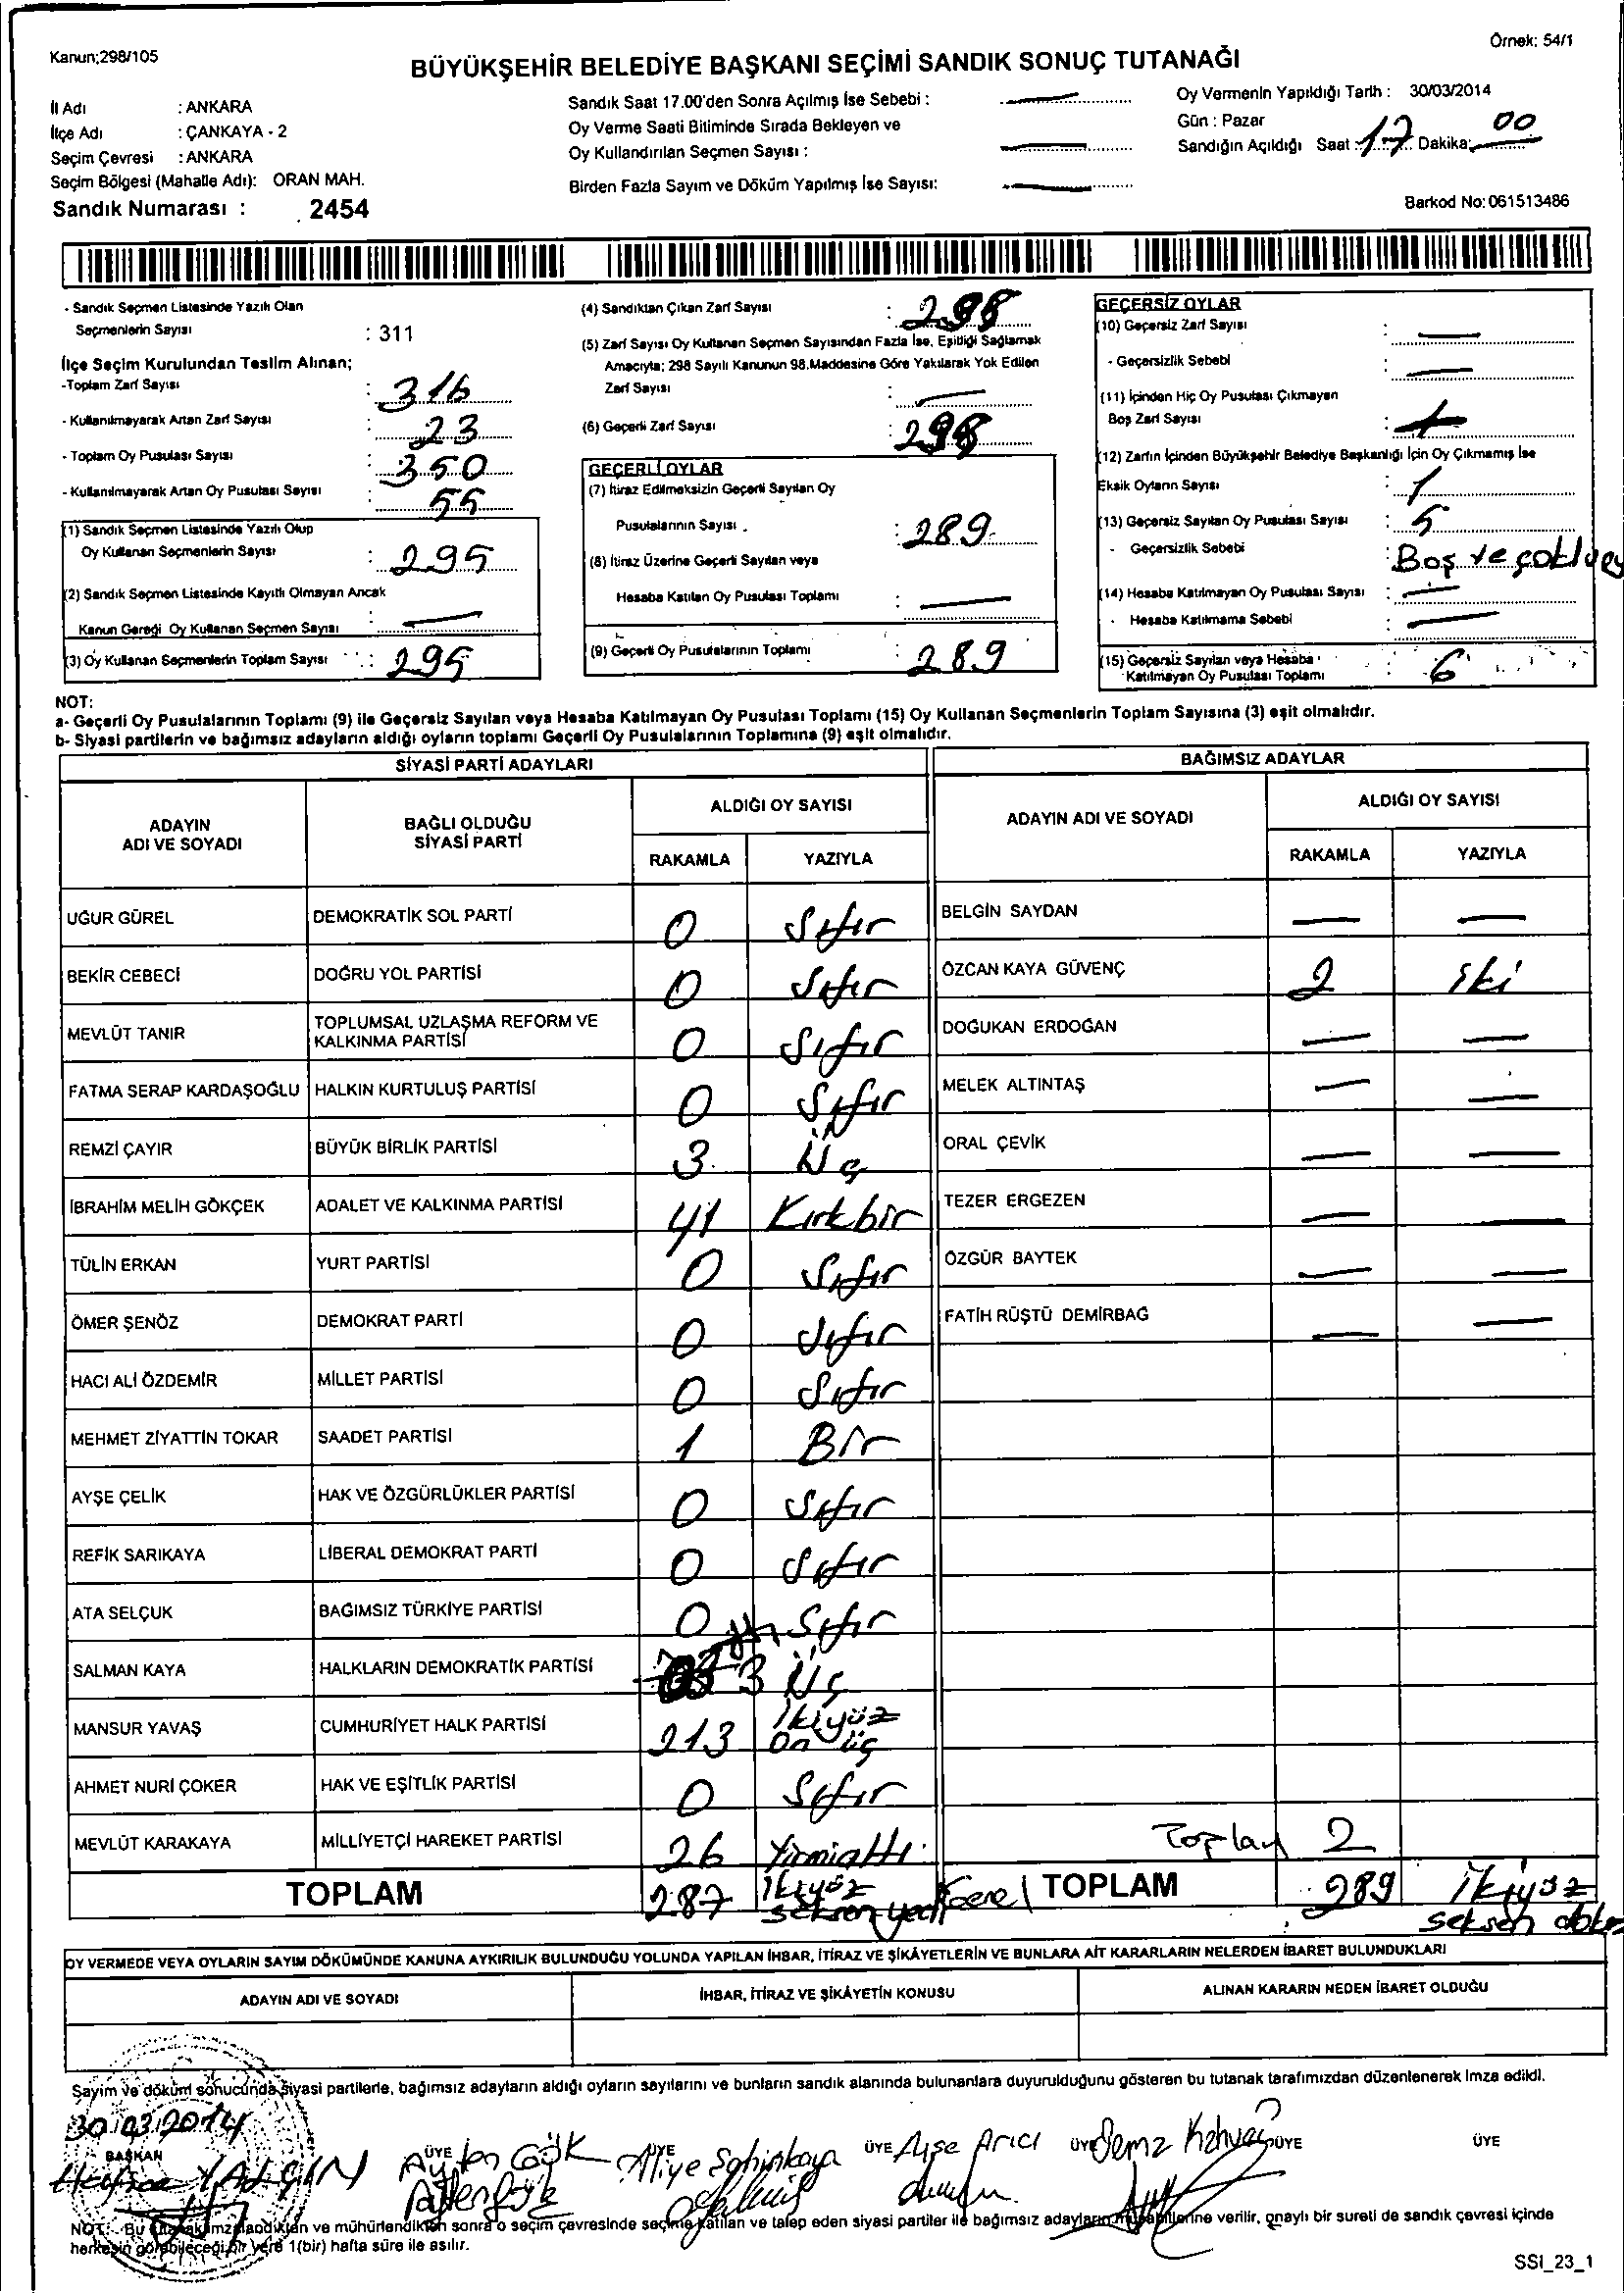 Kanun;298/105
Örnek: 54/1
BÜYÜKŞEHİR BELEDİYE BAŞKANI SEÇİMİ SANDIK SONUÇ TUTANAĞI
İl Adı : ANKARA
İlçe Adı : ÇANKAYA - 2
Seçim Çevresi : ANKARA
Seçim Bölgesi (Mahalle Adı): ORAN MAH.
Sandık Numarası : 2454
Sandık Saat 17.00'den Sonra Açılmış İse Sebebi :
Oy Verme Saati Bitiminde Sırada Bekleyen ve
Oy Kullandırılan Seçmen Sayısı :
Birden Fazla Sayım ve Döküm Yapılmış İse Sayısı:
Oy Vermenin Yapıldığı Tarih : 30/03/2014
Gün : Pazar
Sandığın Açıldığı Saat : 17 Dakika: 00
Barkod No: 061513486
- Sandık Seçmen Listesinde Yazılı Olan
Seçmenlerin Sayısı : 311
İlçe Seçim Kurulundan Teslim Alınan;
-Toplam Zarf Sayısı : 316
- Kullanılmayarak Artan Zarf Sayısı : 23
- Toplam Oy Pusulası Sayısı : 350
- Kullanılmayarak Artan Oy Pusulası Sayısı : 55
(1) Sandık Seçmen Listesinde Yazılı Olup
Oy Kullanan Seçmenlerin Sayısı : 295
(2) Sandık Seçmen Listesinde Kayıtlı Olmayan Ancak
Kanun Gereği Oy Kullanan Seçmen Sayısı :
(3) Oy Kullanan Seçmenlerin Toplam Sayısı : 295
(4) Sandıktan Çıkan Zarf Sayısı :
(5) Zarf Sayısı Oy Kullanan Seçmen Sayısından Fazla İse, Eşitliği Sağlamak
Amacıyla; 298 Sayılı Kanunun 98.Maddesine Göre Yakılarak Yok Edilen
Zarf Sayısı :
(6) Geçerli Zarf Sayısı :
GEÇERLİ OYLAR
(7) İtiraz Edilmeksizin Geçerli Sayılan Oy
Pusulalarının Sayısı : 289
(8) İtiraz Üzerine Geçerli Sayılan veya
Hesaba Katılan Oy Pusulası Toplamı :
(9) Geçerli Oy Pusulalarının Toplamı : 289
GEÇERSİZ OYLAR
(10) Geçersiz Zarf Sayısı :
- Geçersizlik Sebebi :
(11) İçinden Hiç Oy Pusulası Çıkmayan
Boş Zarf Sayısı :
(12) Zarfın İçinden Büyükşehir Belediye Başkanlığı İçin Oy Çıkmamış İse
Eksik Oyların Sayısı : 1
(13) Geçersiz Sayılan Oy Pusulası Sayısı : 5
- Geçersizlik Sebebi : Boş ve
(14) Hesaba Katılmayan Oy Pusulası Sayısı :
- Hesaba Katılmama Sebebi :
(15) Geçersiz Sayılan veya Hesaba
Katılmayan Oy Pusulası Toplamı : 6
NOT:
a- Geçerli Oy Pusulalarının Toplamı (9) ile Geçersiz Sayılan veya Hesaba Katılmayan Oy Pusulası Toplamı (15) Oy Kullanan Seçmenlerin Toplam Sayısına (3) eşit olmalıdır.
b- Siyasi partilerin ve bağımsız adayların aldığı oyların toplamı Geçerli Oy Pusulalarının Toplamına (9) eşit olmalıdır.
SİYASİ PARTİ ADAYLARI
ADAYIN
ADI VE SOYADI
BAĞLI OLDUĞU
SİYASİ PARTİ
ALDIĞI OY SAYISI
RAKAMLA YAZIYLA
UĞUR GÜREL DEMOKRATİK SOL PARTİ 0 Sıfır
BEKİR CEBECİ DOĞRU YOL PARTİSİ 0 Sıfır
MEVLÜT TANIR TOPLUMSAL UZLAŞMA REFORM VE
KALKINMA PARTİSİ 0 Sıfır
FATMA SERAP KARDAŞOĞLU HALKIN KURTULUŞ PARTİSİ 0 Sıfır
REMZİ ÇAYIR BÜYÜK BİRLİK PARTİSİ 3 Üç
İBRAHİM MELİH GÖKÇEK ADALET VE KALKINMA PARTİSİ 41 Kırkbir
TÜLİN ERKAN YURT PARTİSİ 0 Sıfır
ÖMER ŞENÖZ DEMOKRAT PARTİ 0 Sıfır
HACI ALİ ÖZDEMİR MİLLET PARTİSİ 0 Sıfır
MEHMET ZİYATTİN TOKAR SAADET PARTİSİ 1 Bir
AYŞE ÇELİK HAK VE ÖZGÜRLÜKLER PARTİSİ 0 Sıfır
REFİK SARIKAYA LİBERAL DEMOKRAT PARTİ 0 Sıfır
ATA SELÇUK BAĞIMSIZ TÜRKİYE PARTİSİ 0 Sıfır
SALMAN KAYA HALKLARIN DEMOKRATİK PARTİSİ 3 Üç
MANSUR YAVAŞ CUMHURİYET HALK PARTİSİ 213 İkiyüz
On üç
AHMET NURİ ÇOKER HAK VE EŞİTLİK PARTİSİ 0 Sıfır
MEVLÜT KARAKAYA MİLLİYETÇİ HAREKET PARTİSİ 26 Yirmialtı
TOPLAM 287 İkiyüz
seksen yedi
BAĞIMSIZ ADAYLAR
ADAYIN ADI VE SOYADI
ALDIĞI OY SAYISI
RAKAMLA YAZIYLA
BELGİN SAYDAN
ÖZCAN KAYA GÜVENÇ 2 iki
DOĞUKAN ERDOĞAN
MELEK ALTINTAŞ
ORAL ÇEVİK
TEZER ERGEZEN
ÖZGÜR BAYTEK
FATİH RÜŞTÜ DEMİRBAĞ
Toplam 2
Genel TOPLAM 289 İkiyüz
seksen
OY VERMEDE VEYA OYLARIN SAYIM DÖKÜMÜNDE KANUNA AYKIRILIK BULUNDUĞU YOLUNDA YAPILAN İHBAR, İTİRAZ VE ŞİKÂYETLERİN VE BUNLARA AİT KARARLARIN NELERDEN İBARET BULUNDUKLARI
ADAYIN ADI VE SOYADI
İHBAR, İTİRAZ VE ŞİKÂYETİN KONUSU
ALINAN KARARIN NEDEN İBARET OLDUĞU
Sayım ve döküm sonucunda siyasi partilerle, bağımsız adayların aldığı oyların sayılarını ve bunların sandık alanında bulunanlara duyurulduğunu gösteren bu tutanak tarafımızdan düzenlenerek imza edildi.
30.03.2014
BAŞKAN ÜYE ÜYE ÜYE ÜYE ÜYE ÜYE
YALÇIN Ayten Gök Aliye Şahinkaya Ayşe Arıcı
NOT: Bu tutanak imzalandıktan ve mühürlendikten sonra o seçim çevresinde seçime katılan ve talep eden siyasi partiler ile bağımsız adayların müşahitlerine verilir, onaylı bir sureti de sandık çevresi içinde
herkesin görebileceği bir yere 1(bir) hafta süre ile asılır.
SSI_23_1